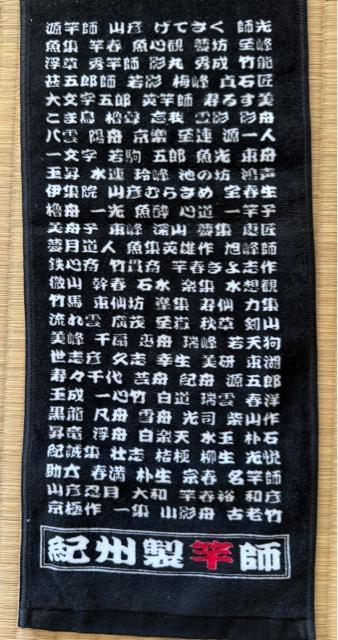 源竿師 山彦 げてさく 師光
魚集 竿春 魚心観 至峰
浮草 秀竿師 影丸 秀成 竹龍
甚五郎師 若影 梅峰 貞石匠
大文字五郎 英竿師 寿るす美
こま鳥 忘我 雲影 影舟
八雲 陽舟 京楽 至連 源一人
一文字 若駒 五郎 魚光 東舟
玉昇 水連 玲峰 池の坊 鴻声
伊集院 山彦むらさめ 宝春生
櫓舟 一光 魚酔 心道 一竿子
美舟子 東峰 深山 恵匠
雲月道人 魚集英雄作 旭峰師
鉄心斎 竹貫斎 竿春きよ志作
微山 幹春 石水 楽集 水想観
竹馬 東仙坊 寿仙 力集
流れ雲 廣茂 至嶽 秋草 剣山
美峰 千扇 忠舟 瑞峰 若天狗
世志彦 久志 幸生 美研 東湖
寿々千代 芸舟 紀舟 源五郎
玉成 一心竹 白道 瑞雲 春洋
黒龍 凡舟 雪舟 光司 柴山作
昇竜 浮舟 白楽天 水玉 朴石
紀誠集 壮志 桔梗 柳生 光悦
助六 春満 朴生 宗春 名竿師
山彦忍月 大和 竿春裕 和彦
京極作 一集 山影舟 古老竹
紀州製竿師